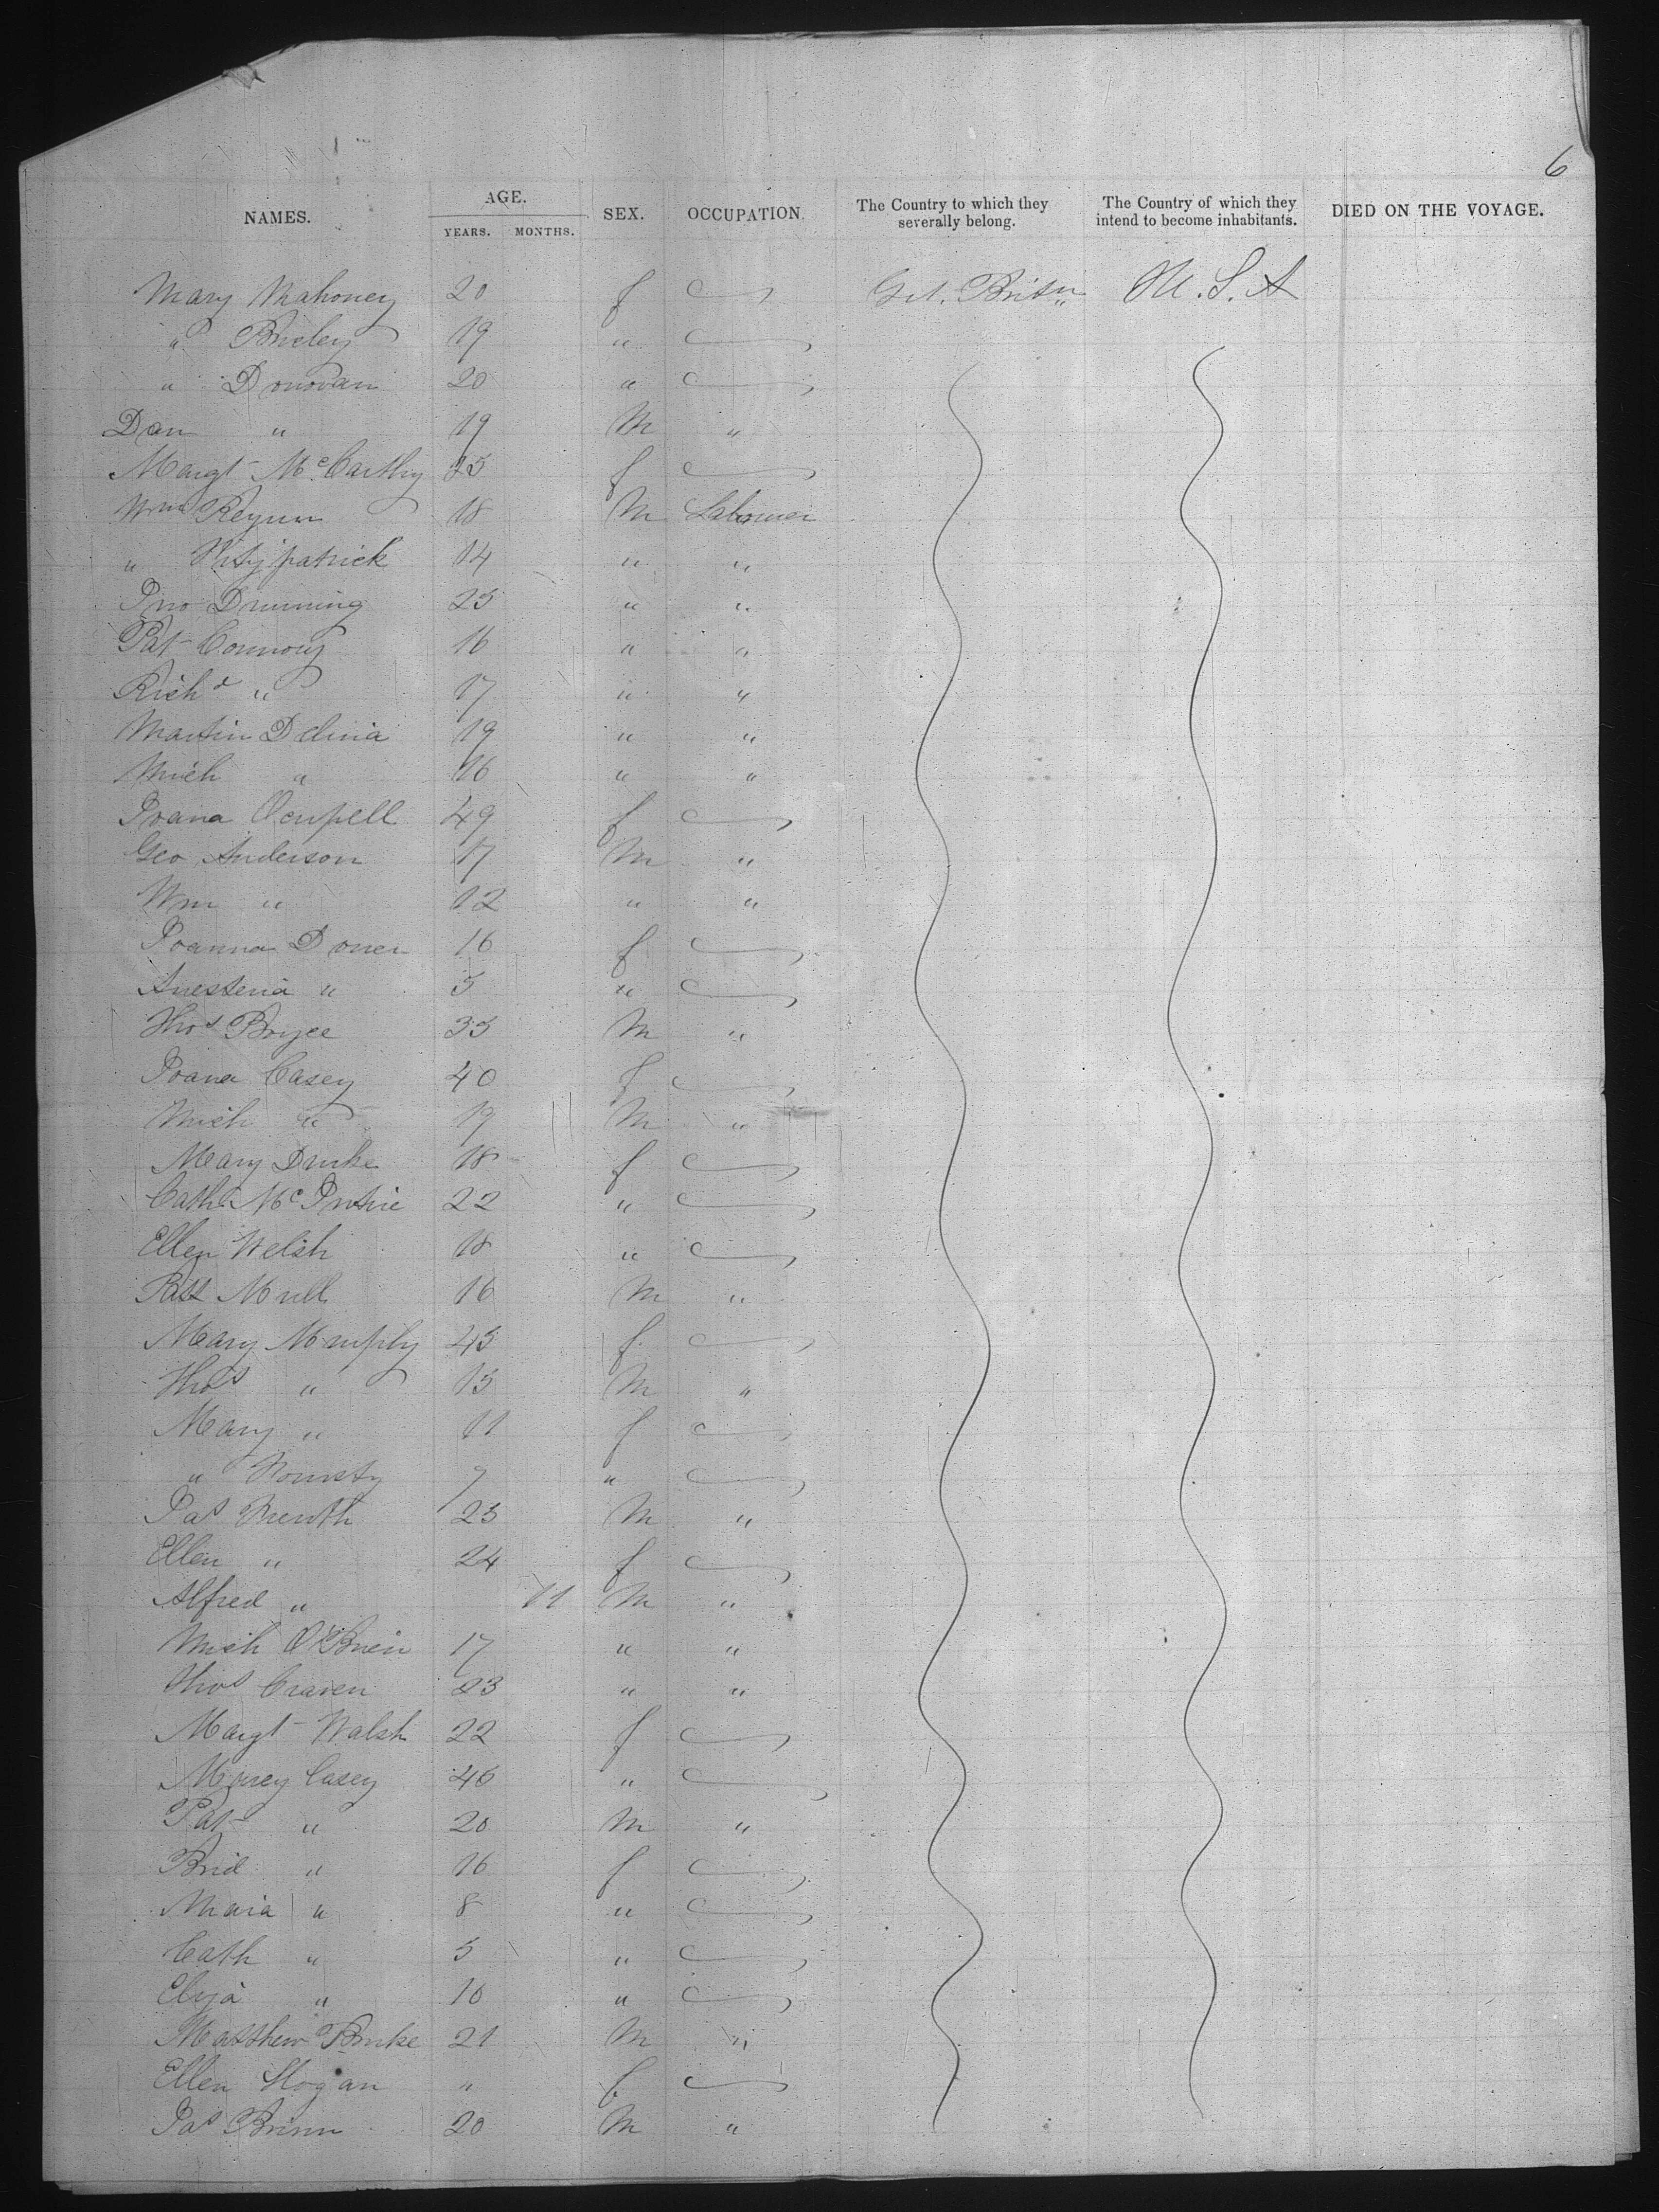 6
NAMES. AGE. YEARS. MONTHS. SEX. OCCUPATION. The Country to which they severally belong. The Country of which they intend to become inhabitants. DIED ON THE VOYAGE.
Mary Mahoney 20 f Gt. Britn U.S.A
" 19 "
" Donovan 20 "
Dan " 19 M "
Margt McCarthy 25 f
Wm 18 M Labourer
" Fitzpatrick 14 " "
Jno 23 " "
Pat 16 " "
Richd " 17 " "
Martin 19 " "
Mich " 16 " "
Joana 49 f
Geo Anderson 17 M "
Wm " 12 " "
Joanna 16 f
" 5 "
Thos Boyce 35 M "
Joana Casey 40 f
Mich " 19 M "
Mary 18 f
Cath 22 "
Ellen Welsh 18 "
Patt 16 M "
Mary Murphy 45 f
Thos " 15 M "
Mary " 11 f
" "
Jas 23 M "
Ellen " 24 f
Alfred " 11 M "
Mich O'Brien 17 " "
Thos Craven 23 " "
Margt Walsh 22 f
Casey 46 "
Pat " 20 M "
Brid " 16 f
Maria " 8 "
Cath " 5 "
Eliza " 10 "
Matthew Burke 21 M "
Ellen Hogan " f
Jas 20 M "